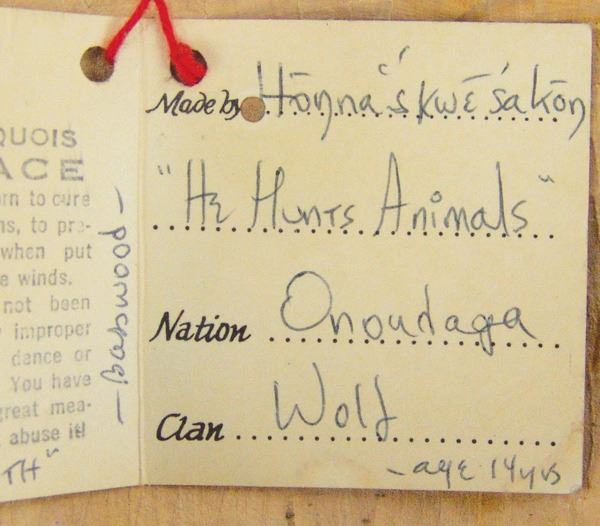 QUOIS
ACE
rn to cure
ns, to pre-
when put
e winds.
not been
improper
dance or
You have
great mea-
abuse it!
TH"
- basswood -
Made by Hōŋna"s'kwē s'akōŋ
"He Hunts Animals"
Nation Onondaga
Clan Wolf
- age 14 yrs